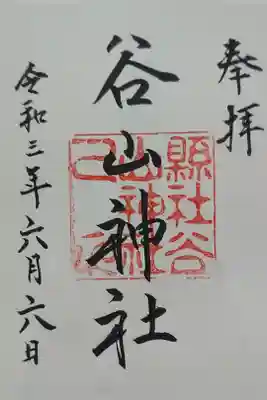 奉拝
谷山神社
縣社谷
山神社
令和三年六月六日